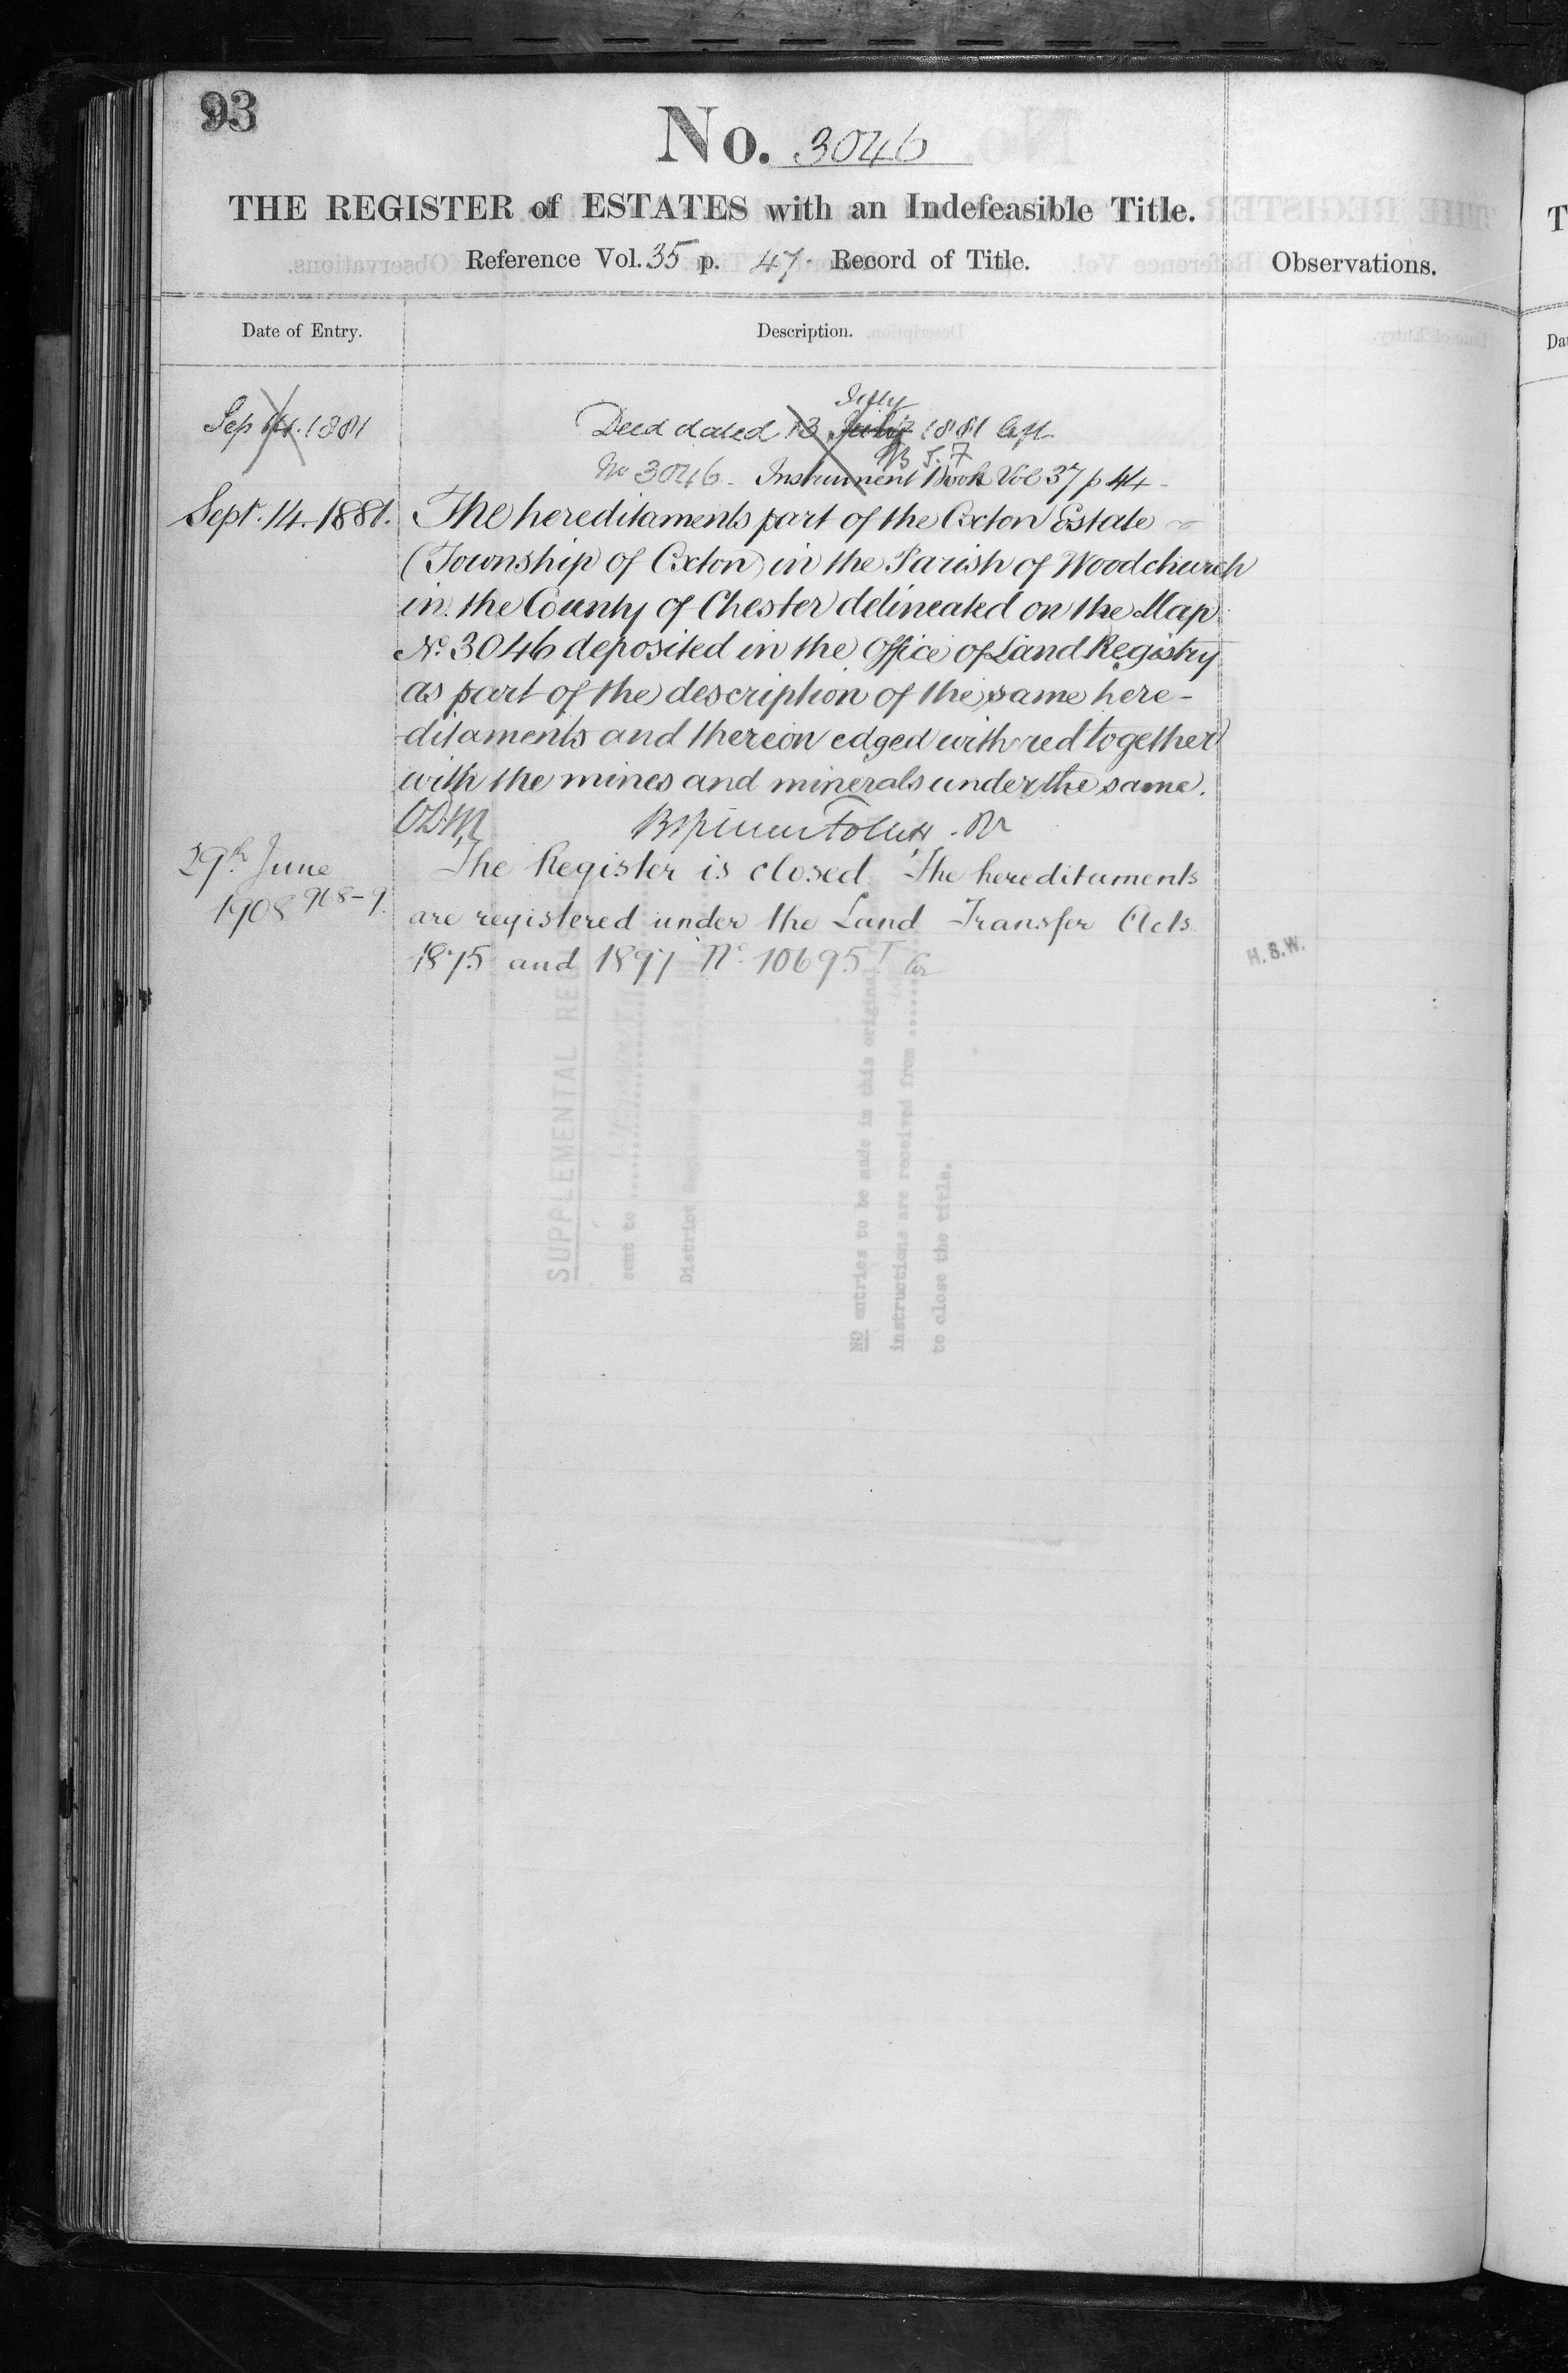 93
No. 3046
THE REGISTER of ESTATES with an Indefeasible Title.
Reference Vol. 35 p. 47. Record of Title.
Observations.
Date of Entry.
Description.
July
Sep 14. 1881
Deed dated 13 July 1881 left
No 3046. Instrument Book Vol 37 p 44
Sept. 14. 1881. The hereditaments part of the Oxton Estate
(Township of Oxton) in the Parish of Woodchurch
in the County of Chester delineated on the Map
No. 3046 deposited in the Office of Land Registry
as part of the description of the same here-
-ditaments and thereon edged with red together
with the mines and minerals under the same.
29th June
The Register is closed. The hereditaments
1908 968-9.
are registered under the Land Transfer Acts
1875 and 1897 No. 10695
H.S.W.
SUPPLEMENTAL REG
sent to
District
NO entries to be made in this original
instructions are received from
to close the title.